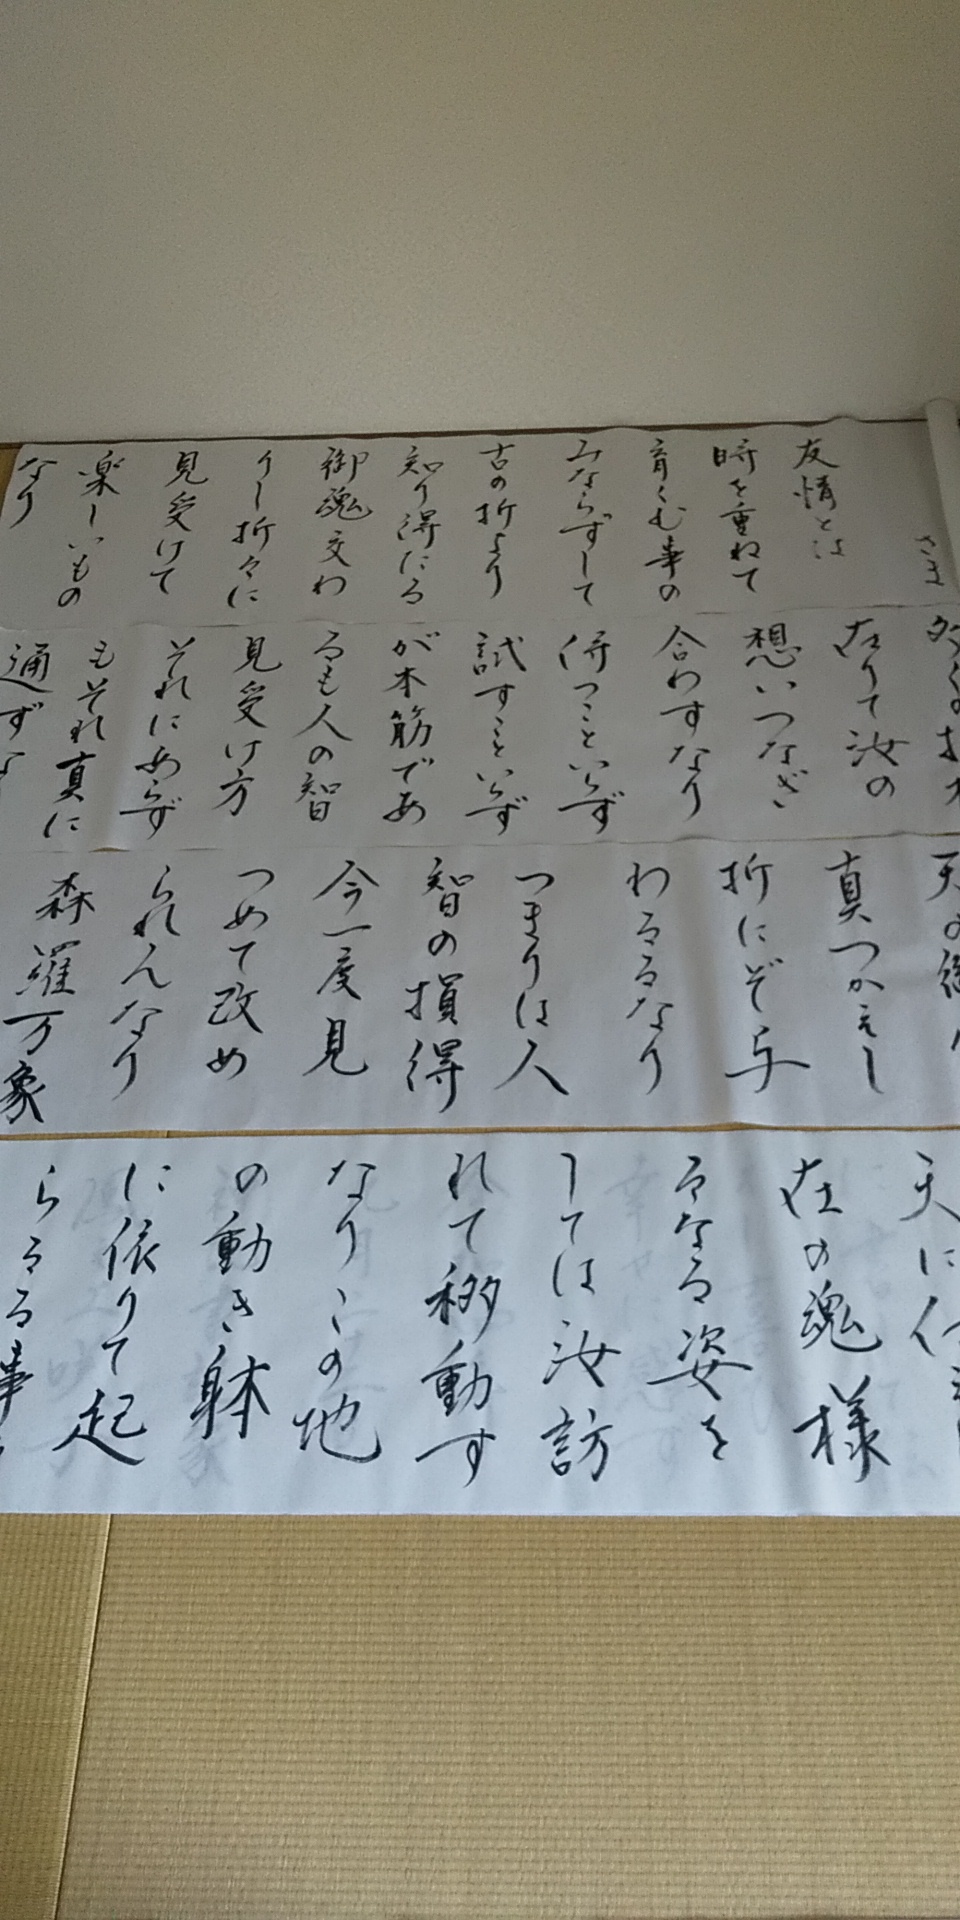 さま
友情とは
時を重ねて
育くむ事の
みならずして
古の折より
知り得たる
御魂交わ
りし折々に
見受けて
楽しいもの
なり
在りて汝の
想いつなぎ
合わすなり
待つこといらず
試すこといらず
が本筋であ
るも人の智
見受け方
それにあらず
もそれ真に
通ずな
真つかえし
折にぞ与
わるるなり
つまりは人
智の損得
今一度見
つめて改め
られんなり
森羅万象
天に任
在の魂様
るなる姿を
しては汝訪
れて移動す
なりこの地
の動き躰
に依りて起
らるる事